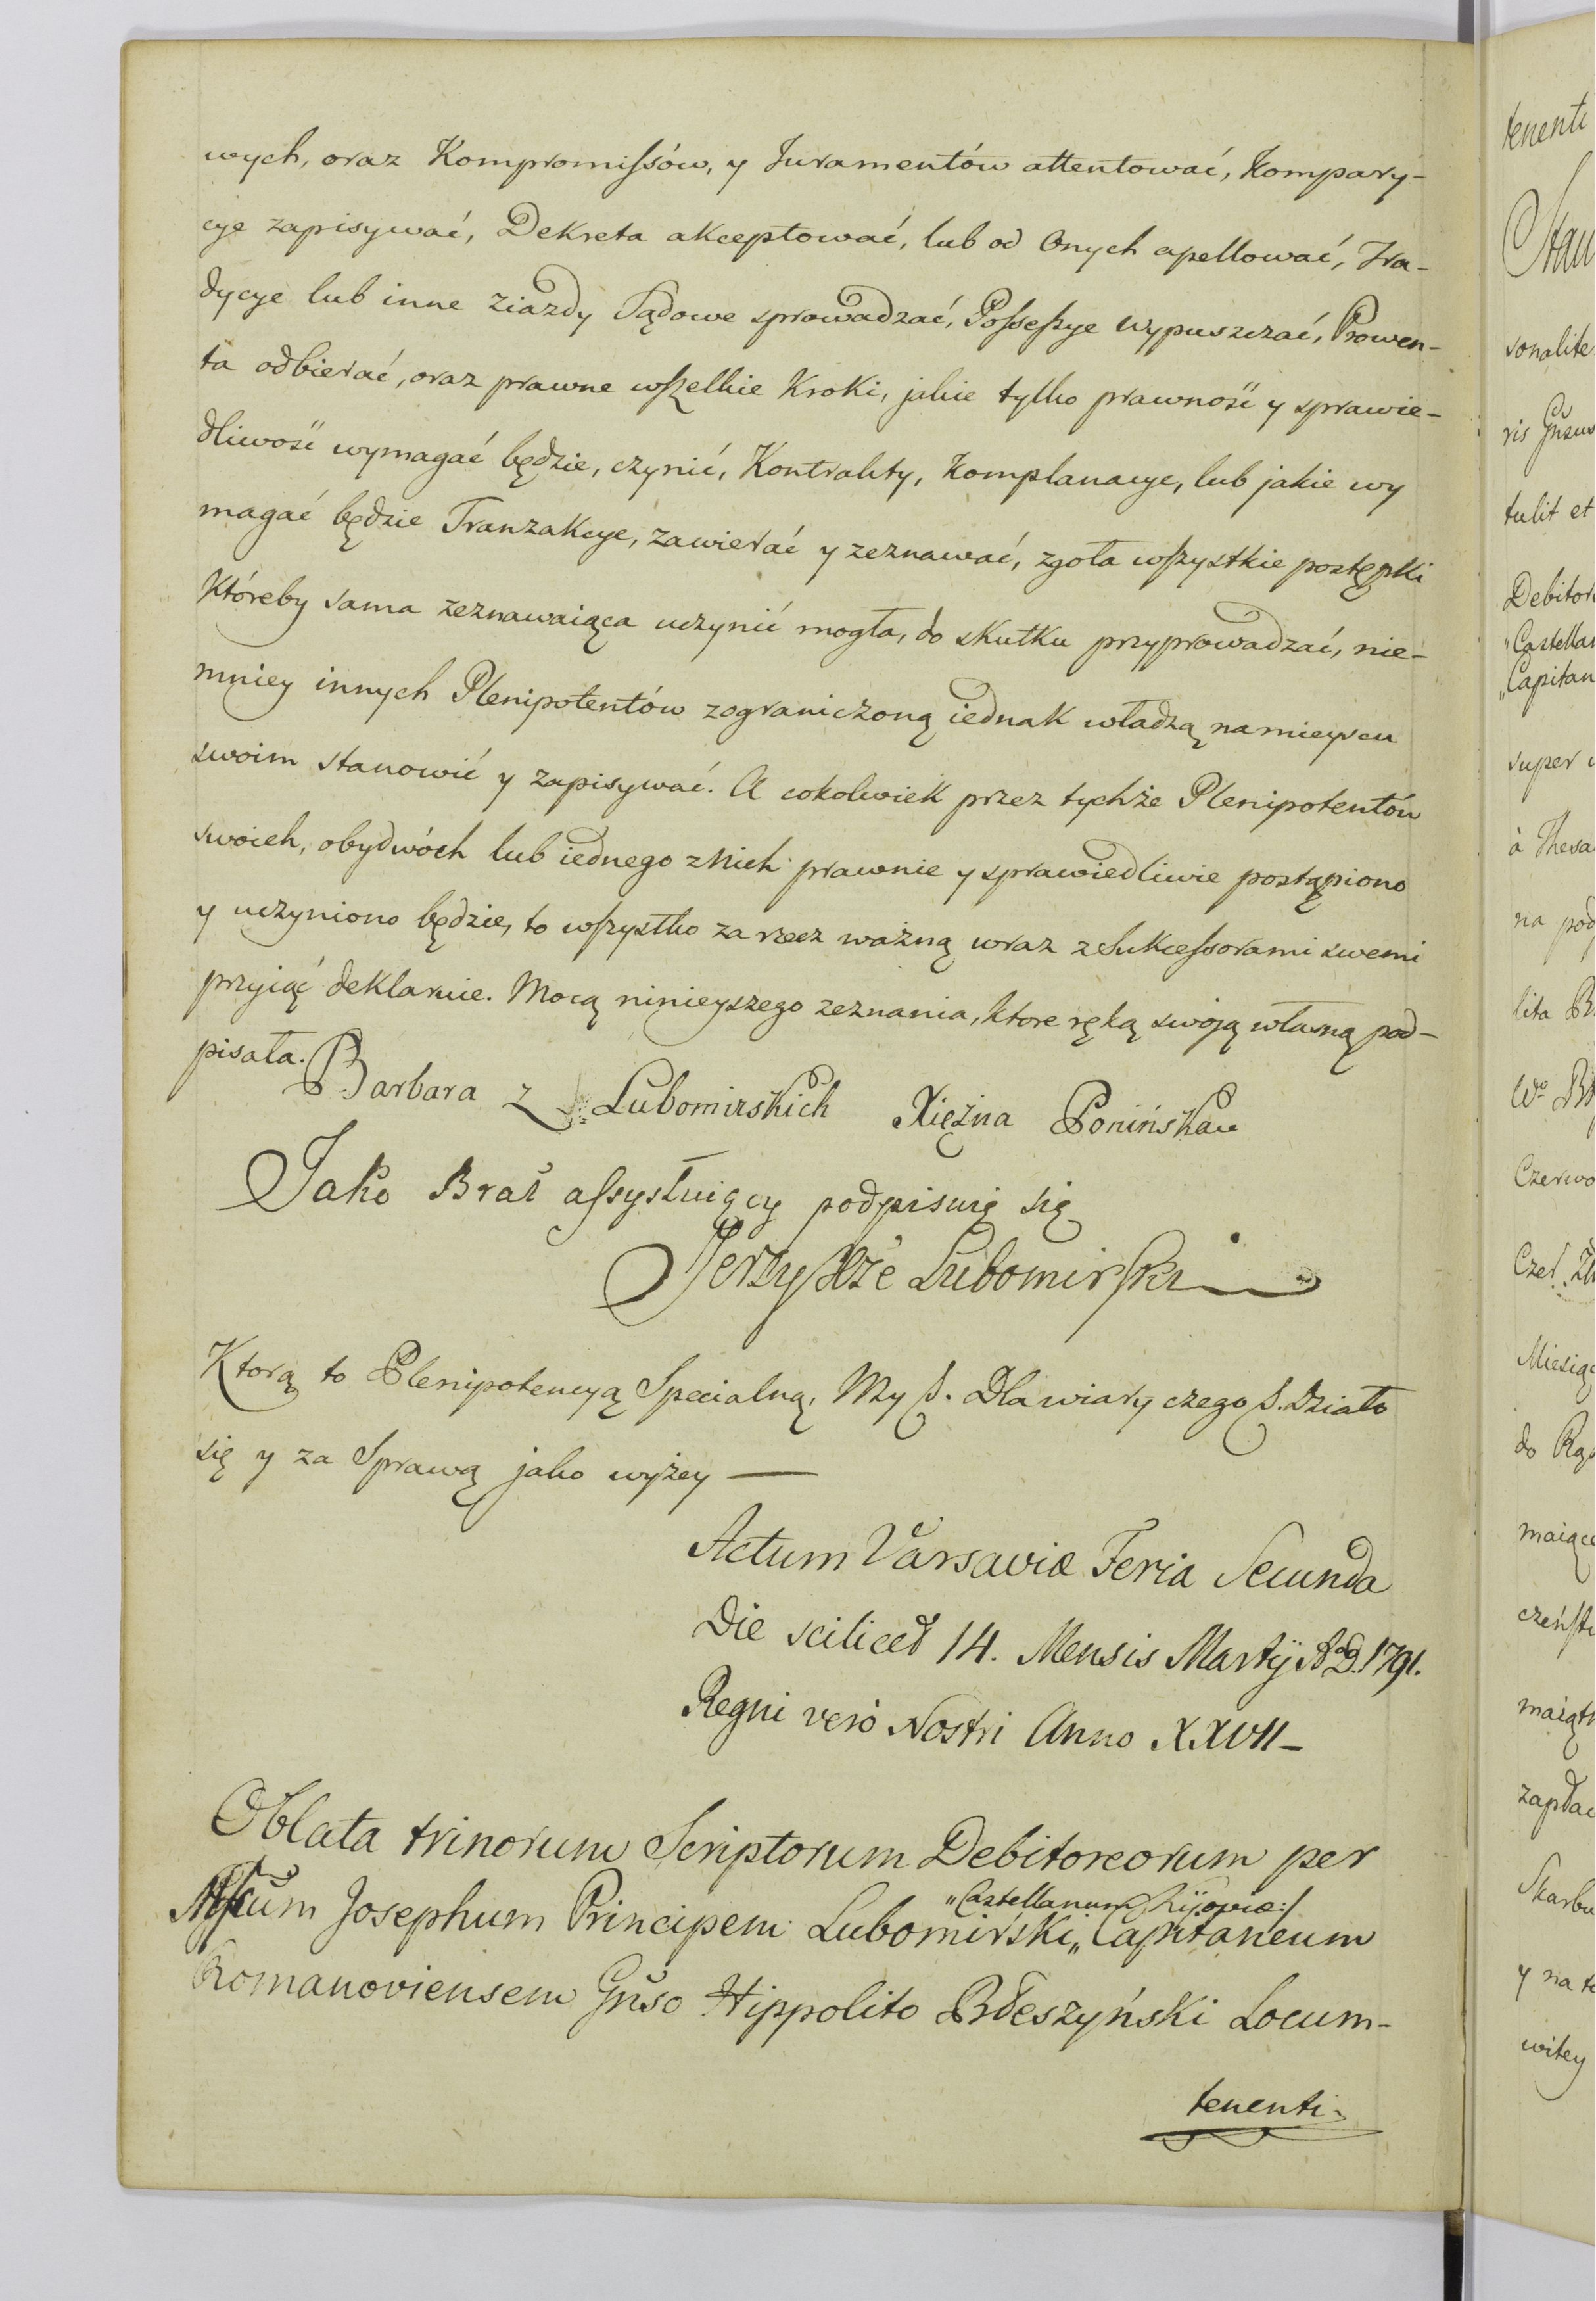 wych, oraz Kompromissów, y Juramentów attentować, Kompary-
cye zapisywać, Dekreta akceptować, lub od Onych apellować, Tra-
dycye lub inne ziazdy Sądowe sprowadzać, Possessye wypuszczać, Prowen-
ta odbierać, oraz prawne wszelkie Kroki, jakie tylko prawność y sprawie-
dliwość wymagać będzie, czynić, Kontrakty, Komplanacye, lub jakie wy
magać będzie Tranzakcye, zawierać y zeznawać, zgoła wszystkie postępki
Któreby sama zeznawaiąca uczynić mogła, do skutku przyprowadzać, nie-
mniey innych Plenipotentów z ograniczoną iednak władzą na mieyscu
swoim stanowić y zapisywać. A cokolwiek przez tychże Plenipotentów
swoich, obydwóch lub iednego z Nich prawnie y sprawiedliwie postąpiono
y uczyniono będzie, to wszystko za rzecz ważną wraz z Sukcessorami swemi
przyiąć deklaruie. Mocą ninieyszego zeznania, ktore ręką swoją własną pod-
pisała.
Barbara z Lubomirskich Xiężna Ponińska
Jako Brat assystuiący podpisuię się
Jerzy Xże Lubomirski
Ktorą to Plenipotencyą Specialną, My S. Dla wiary czego S. Działo
się y za Sprawą jako wyżey —
Actum Varsaviæ Feria Secunda
Die scilicet 14. Mensis Martÿ A° D. 1791.
Regni verò Nostri Anno XXVII —
Oblata trinorum Scriptorum Debitoreorum per
"Castellanum Kijoviæ:/
Josephum Principem Lubomirski„ Capitaneum
Romanoviensem Gnso Hippolito Błeszyński Locum-
tenenti